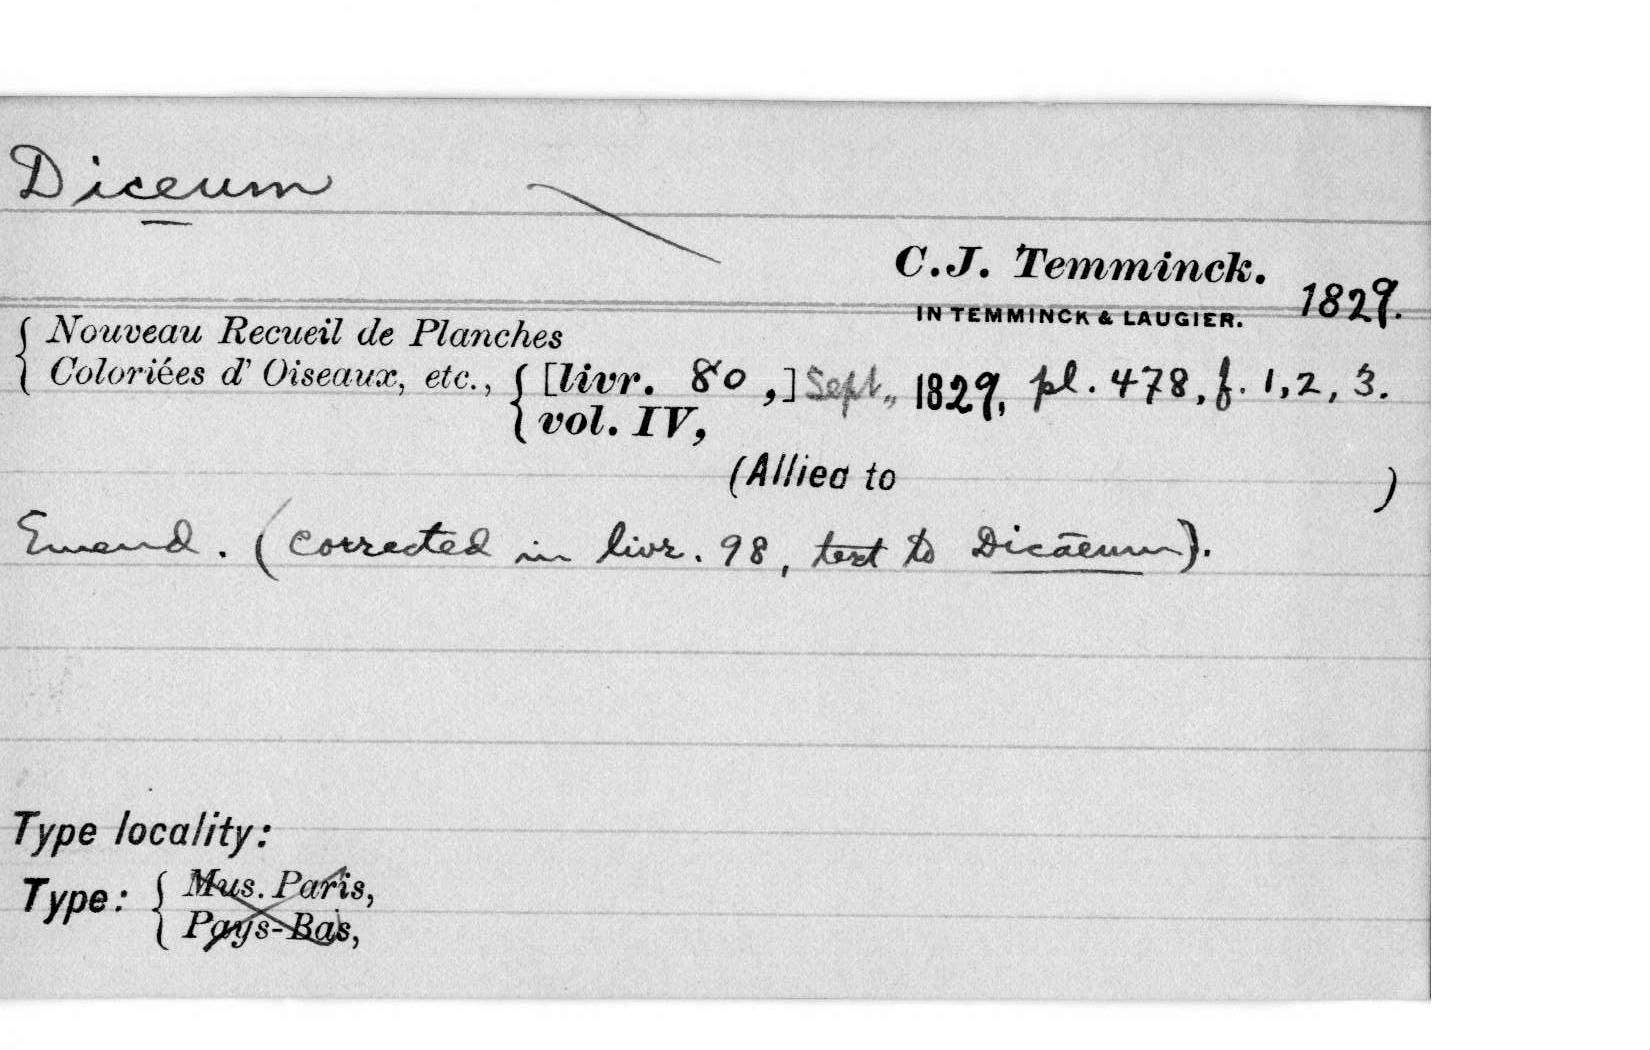 Diceum
C.J. Temminck.
IN TEMMINCK & LAUGIER. 1829.
{ Nouveau Recueil de Planches
Coloriées d' Oiseaux, etc., { [livr. 80,] Sept., 1829, pl. 478, f. 1, 2, 3.
vol. IV,
(Allied to )
Emend. (corrected in livr. 98, text to Dicaeum).
Type locality:
Type: { Mus. Paris,
Pays-Bas,